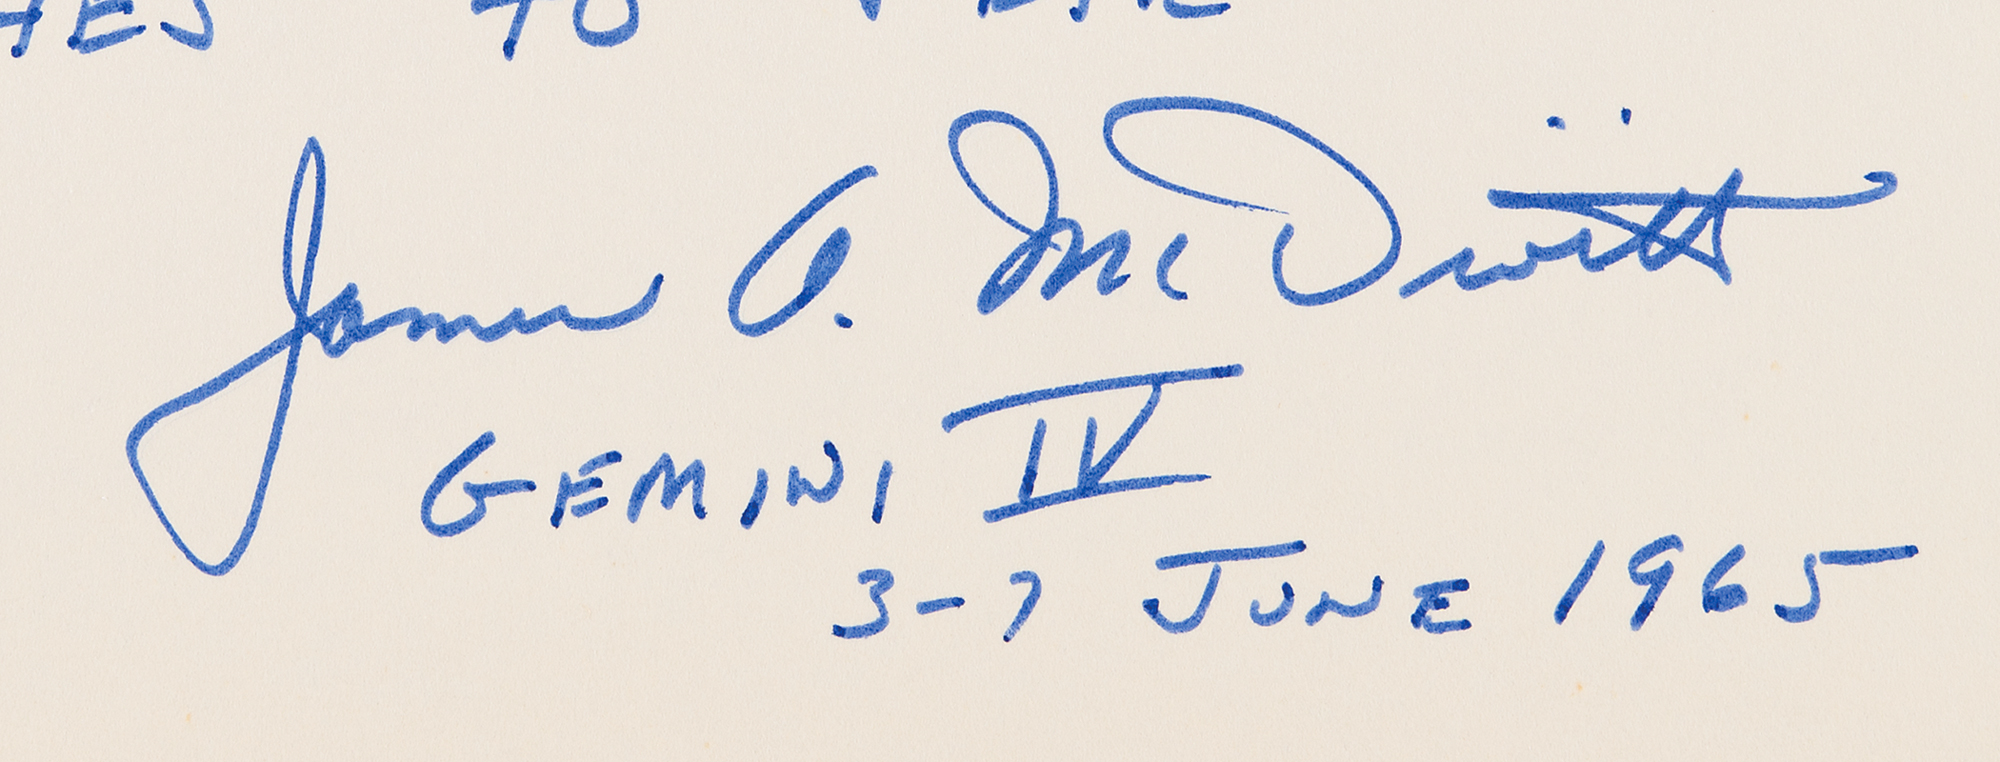 TO
James A. McDivitt
GEMINI IV
3-7 JUNE 1965